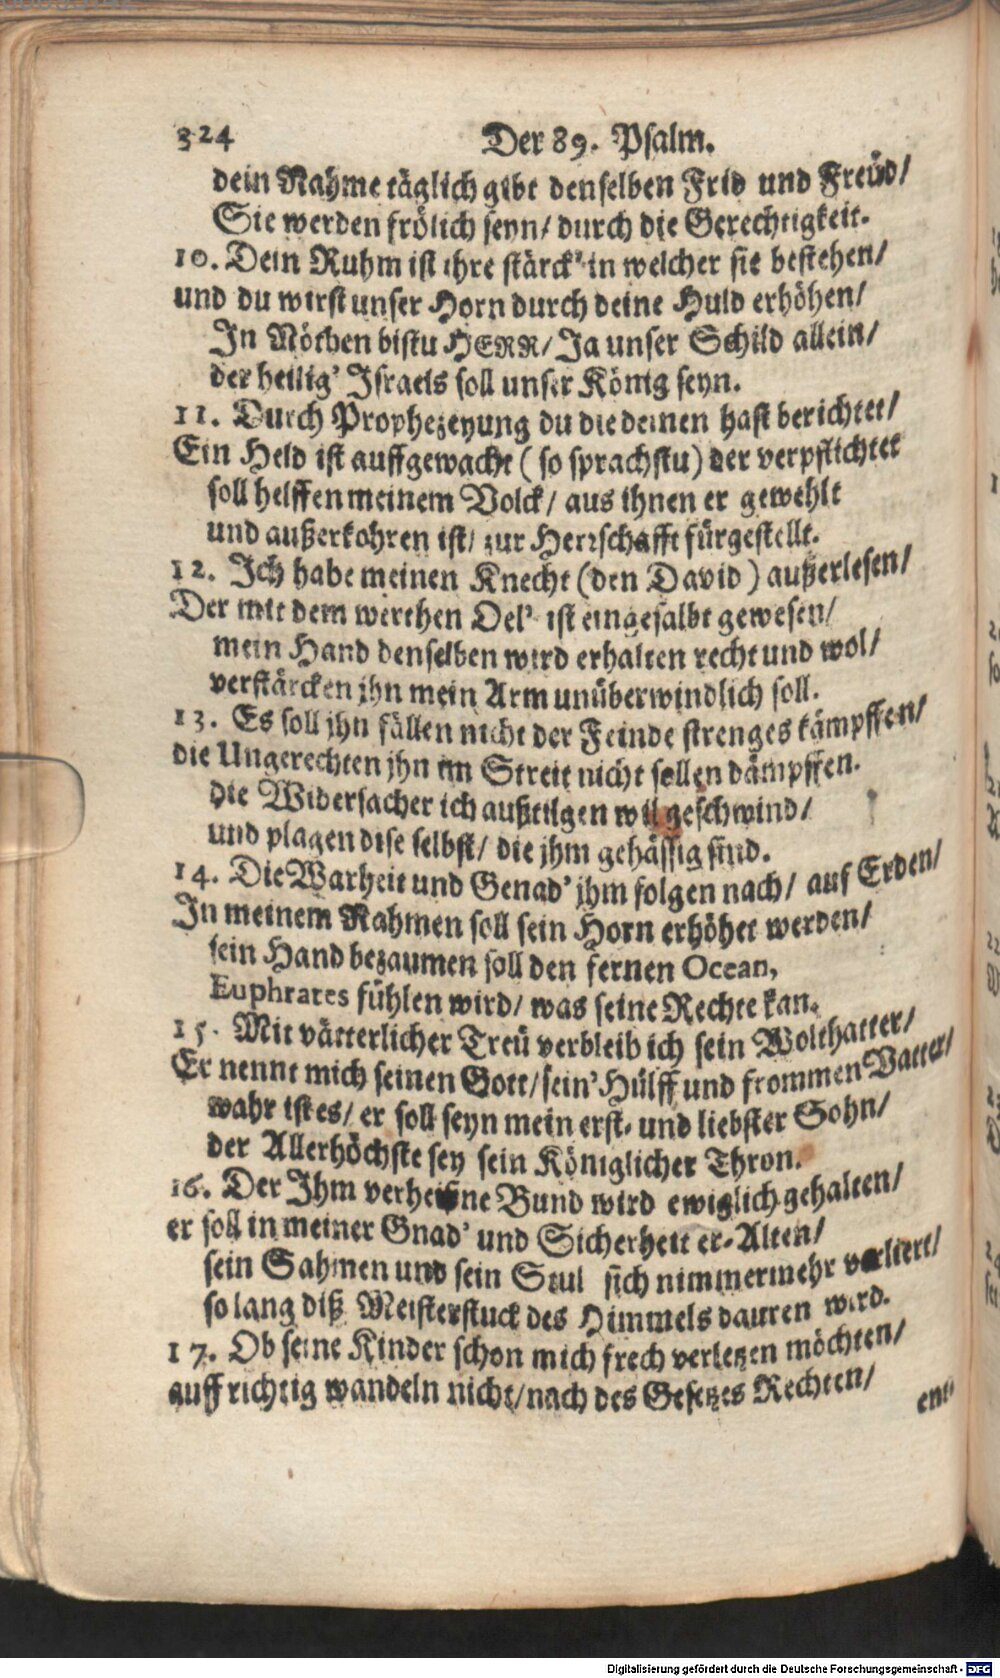 324 Der 89. Psalm.
dein Nahme täglich gibt denselben Frid und Freüd/
Sie werden frölich seyn/ durch die Gerechtigkeit.
10. Dein Ruhm ist ihre stärck' in welcher sie bestehen/
und du wirst unser Horn durch deine Huld erhöhen/
In Nöthen bistu HERR/ Ja unser Schild allein/
der heilig' Israels soll unser König seyn.
11. Durch Prophezeyung du die deinen hast berichtet/
Ein Held ist auffgewacht ( so sprachstu) der verpflichtet
soll helffen meinem Volck/ aus ihnen er gewehlt
und außerkohren ist/ zur Herrschafft fürgestellt.
12. Ich habe meinen Knecht (den David ) außerlesen/
Der mit dem werthen Oel' ist eingesalbt gewesen/
mein Hand denselben wird erhalten recht und wol/
verstärcken jhn mein Arm unüberwindlich soll.
13. Es soll jhn fällen nicht der Feinde strenges kämpffen/
die Ungerechten jhn im Streit nicht sollen dämpffen.
die Widersacher ich außtilgen wil geschwind/
und plagen dise selbst/ die jhm gehässig sind.
14. Die Warheit und Genad' jhm folgen nach/ auf Erden/
In meinem Nahmen soll sein Horn erhöhet werden/
sein Hand bezaumen soll den fernen Ocean,
Euphrates fühlen wird/ was seine Rechte kan.
15. Mit vätterlicher Treü verbleib ich sein Wolthatter/
Er nennt mich seinen Gott/ sein' Hülff und frommen Vatter/
wahr ist es/ er soll seyn mein erst- und liebster Sohn/
der Allerhöchste sey sein Königlicher Thron.
16. Der Ihm verheißne Bund wird ewiglich gehalten/
er soll in meiner Gnad' und Sicherheit er-Alten/
sein Sahmen und sein Stul sich nimmermehr verliert/
so lang diß Meisterstuck des Himmels dauren wird.
17. Ob seine Kinder schon mich frech verletzen möchten/
auffrichtig wandeln nicht/ nach des Gesetzes Rechten/
ent-
Digitalisierung gefördert durch die Deutsche Forschungsgemeinschaft - DFG